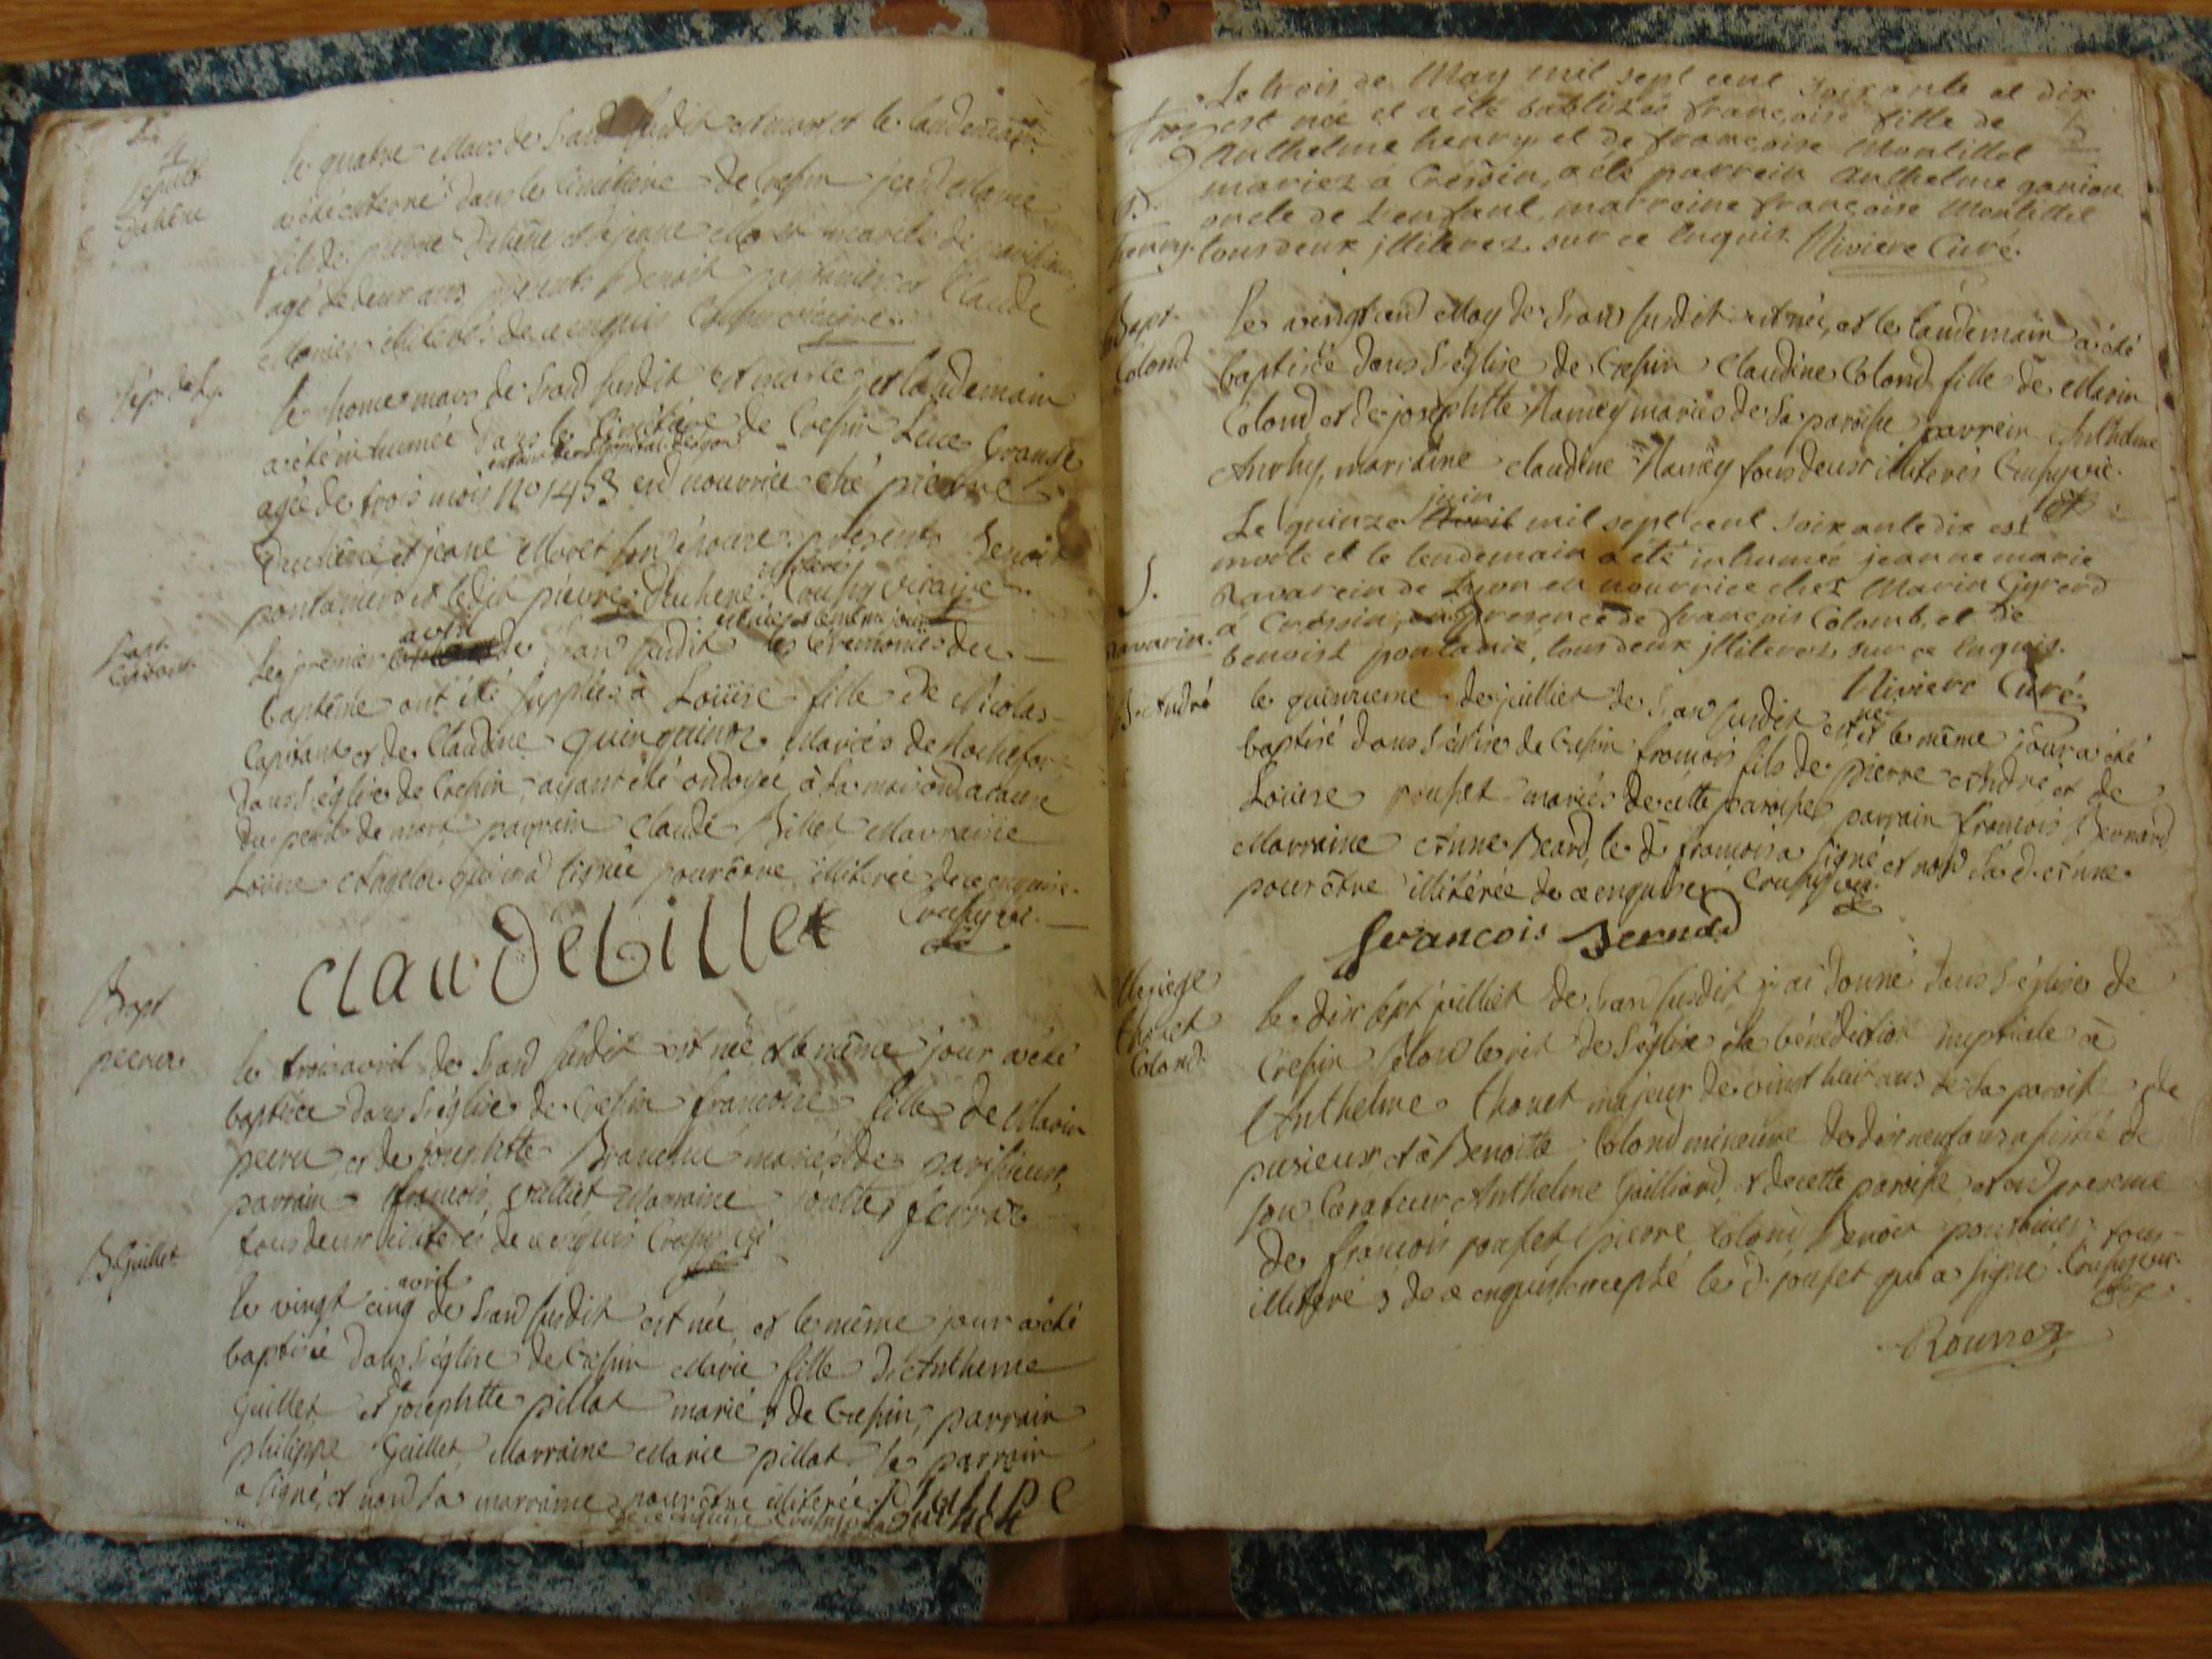 4
Sepult
Duhême
le quatre Mars de L'an susdit est mort et le landemain
a été enterré dans le Cimétiere de Crepin jean Marie
fils de pierre Duhême et de jeane Moret mariés de
agé de deux ans presents Benoit pontanier, et Claude
illiterés de ce enquis
Sép. de Ly.
le mars de L'an susdit est morte, et landemain
a été inhumée dans le Cimétiere de Crepin Luce Grande
enfant de L'hopital de Lyon
agée de trois mois No 1453 en nourrice ché pierre
Duhême, et jeane Moret son épouse presents Benoit
pontanier et ledit pierre Duhene illiteré Coupy vicaire
Bapt.
Capitant
Le premier avril de L'an susdit les Cérémonies du
baptême ont été supplées à Loüise fille de Nicolas
Capitant et de Claudine quinquinoz Mariés de Rochefort
dans L'église de Crepin, ayant été ondoyée à la maison a cause
du peril de mort, parrain Claude Billet Marraine
Loüise Angelo qui n'a signée pour être illiterée de ce enquise
Coupy vic.
claudebillet
Bapt
peeru
le trois avril de L'an susdit est née et le même jour a été
baptisée dans L'église de Crepin francoise fille de Marin
peeru et de josephtte mariés de parissieux,
parrain francois vulliet Marraine josette ferraz
tous deux illiterés de ce enquis Coupy vic
B. Guillet
le vingt cinq avril de L'an susdit est née, et le même jour a été
baptisée dans L'église de Crepin Marie fille de Anthelme
Guillet, et de josephtte pillat mariés de Crepin, parrain
philippe Guillet, Marraine Marie pillat. le parrain
a signé, et non la marraine pour être illiterée philipe
de ce enquise Coupy guillet
Le trois de May mil sept cent soixante et dix
est née et a été babtizée françoise fille de
Anthelme henry et de françoise Montillet
mariez a Cressin, a été parrein Anthelme
oncle de L'enfant marreine françoise Montillet
henry. tous deux jlliterez sur ce Enquis Riviere Curé.
Bapt
Colond
Le vingt May de L'an susdit est née, et le landemain a été
baptisée dans L'église de Crepin Claudine Colond fille de Marin
Colond et de josephtte Namey mariés de la paroisse parrein Anthelme
marraine claudine Namey tous deux illiterés Coupy vic.
S.
ravarin.
Le quinze juin mil sept cent soixante dix est
morte et le lendemain a été inhumée jeanne marie
Ravarein de Lyon en nourrice chez Marin Gyrerd
à Cressin, en presence de françois Colomb, et de
benoist pontanié, tous deux jlliterez sur ce Enquis.
Riviere Curé.
B. André
le quinzieme de juilliet de L'an susdit est né et le même jour a été
baptisé dans L'église de Crepin francois fils de pierre André et de
Loüise rousset mariés de cette paroisse parrain francois Bernard
Marraine Anne Beard, le d. francois a signé et non la d. Anne
pour être illitérée de ce enquise Coupy vic.
francois Bernard
Mariage
thouet
Colond
le dix sept juilliet de L'an susdit j'ai donné dans L'église de
Crepin selon le rit de L'église la bénédiction nuptiale à
Anthelme thouet majeur de vingt huit ans de la paroisse de
pusieux, et à Benoitte Colond mineure de dix neuf ans assistée de
son Curateur Anthelme Gailliard, et de cette paroisse et en presence
de francois rousset, pierre Colond Benoit pontanier tous
illiteré s de ce enquis, excepté le d. rousset qui a signé. Coupy vic.
Rousset